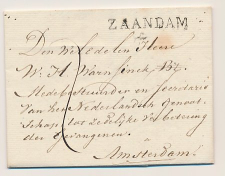 ZAANDAM
Den Wel Edelen Heere
W. H. Warnsinck Bz.
Medebestuurder en Secretaris
van het Nederlandsch Genoot-
schap tot zedelijke verbetering
der Gevangenen
Amsterdam